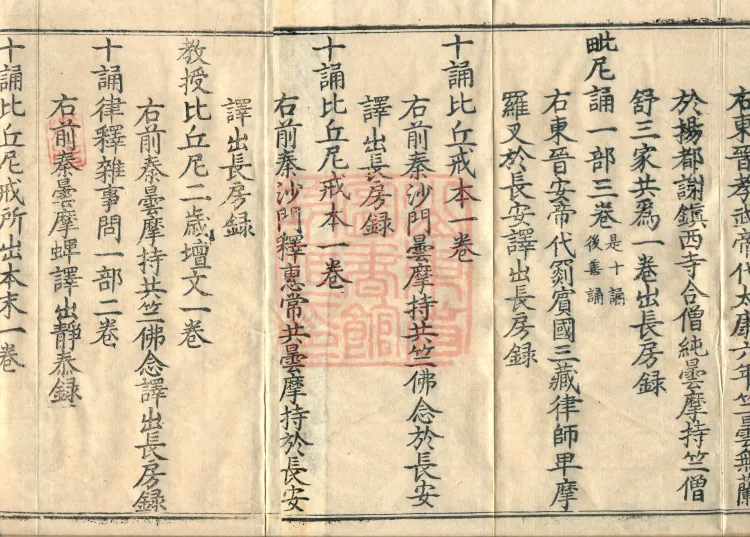 右東晉孝武帝代太康六年竺曇無蘭
於揚都謝鎮西寺合僧純曇摩持竺僧
舒三家共為一卷出長房録
毗尼誦一部三卷是十誦後善誦
右東晉安帝代罽賓國三藏律師卑摩
羅叉於長安譯出長房録
十誦比丘戒本一卷
右前秦沙門曇摩持共竺佛念於長安
譯出長房録
十誦比丘尼戒本一卷
右前秦沙門釋惠常共曇摩持於長安
譯出長房録
教授比丘尼二歳壇文一卷
右前秦曇摩持共竺佛念譯出長房録
十誦律釋雜事問一部二卷
右前秦曇摩蜱譯出靜泰録
十誦比丘尼戒所出本末一卷